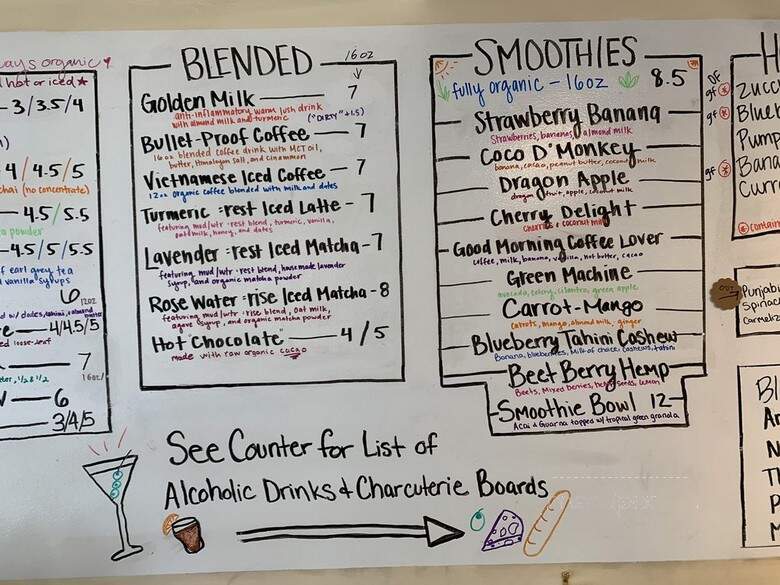 ays organic
hot or iced
3/3.5/4
4/4.5/5
chai (no concentrate)
4.5/5.5
powder
4.5/5/5.5
f earl grey tea
vanilla syrups
6 12oz
w/ dates, tahini, almond butter
e 4/4.5/5
loose-leaf
7
16oz
6
3/4/5
BLENDED 16oz
Golden Milk 7
anti-inflammatory warm lush drink
with almond milk and turmeric ("DIRTY" +1.5)
Bullet-Proof Coffee 7
16oz blended coffee drink with MCT oil,
butter, Himalayan salt, and cinammon
Vietnamese Iced Coffee - 7
12oz organic coffee blended with milk and dates
Turmeric :rest Iced Latte - 7
featuring mud/wtr :rest blend, turmeric, vanilla,
oat milk, honey, and dates
Lavender :rest Iced Matcha - 7
featuring mud/wtr :rest blend, homemade lavender
syrup, and organic matcha powder
Rose Water :rise Iced Matcha - 8
featuring mud/wtr :rise blend, oat milk,
agave syrup, and organic matcha powder
Hot Chocolate 4/5
made with raw organic cacao
SMOOTHIES
fully organic - 16oz 8.5
Strawberry Banana
Strawberries, bananas, almond milk
Coco D'Monkey
banana, cacao, peanut butter, coconut milk
Dragon Apple
dragon fruit, apple, coconut milk
Cherry Delight
cherries & coconut milk
Good Morning Coffee Lover
coffee, milk, banana, vanilla, nut butter, cacao
Green Machine
avocado, celery, cilantro, green apple
Carrot-Mango
carrots, mango, almond milk, ginger
Blueberry Tahini Cashew
Banana, blueberries, milk of choice, cashews, tahini
Beet Berry Hemp
Beets, Mixed berries, hemp seeds, lemon
Smoothie Bowl 12
Acai & Guarana topped w/ tropical green granola
H
DF
gf Zucc
gf Blue
Pump
gf Bana
Curr
contain
OUT
Punjabi
Spinac
Carmeliz
Bl
A
N
T
P
M
See Counter for List of
Alcoholic Drinks & Charcuterie Boards